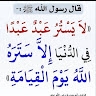 قال رسول الله ﷺ :
« لَا يَسْتُرُ عَبْدٌ عَبْدًا
فِي الدُّنْيَا إِلَّا سَتَرَهُ
اللَّهُ يَوْمَ الْقِيَامَةِ »